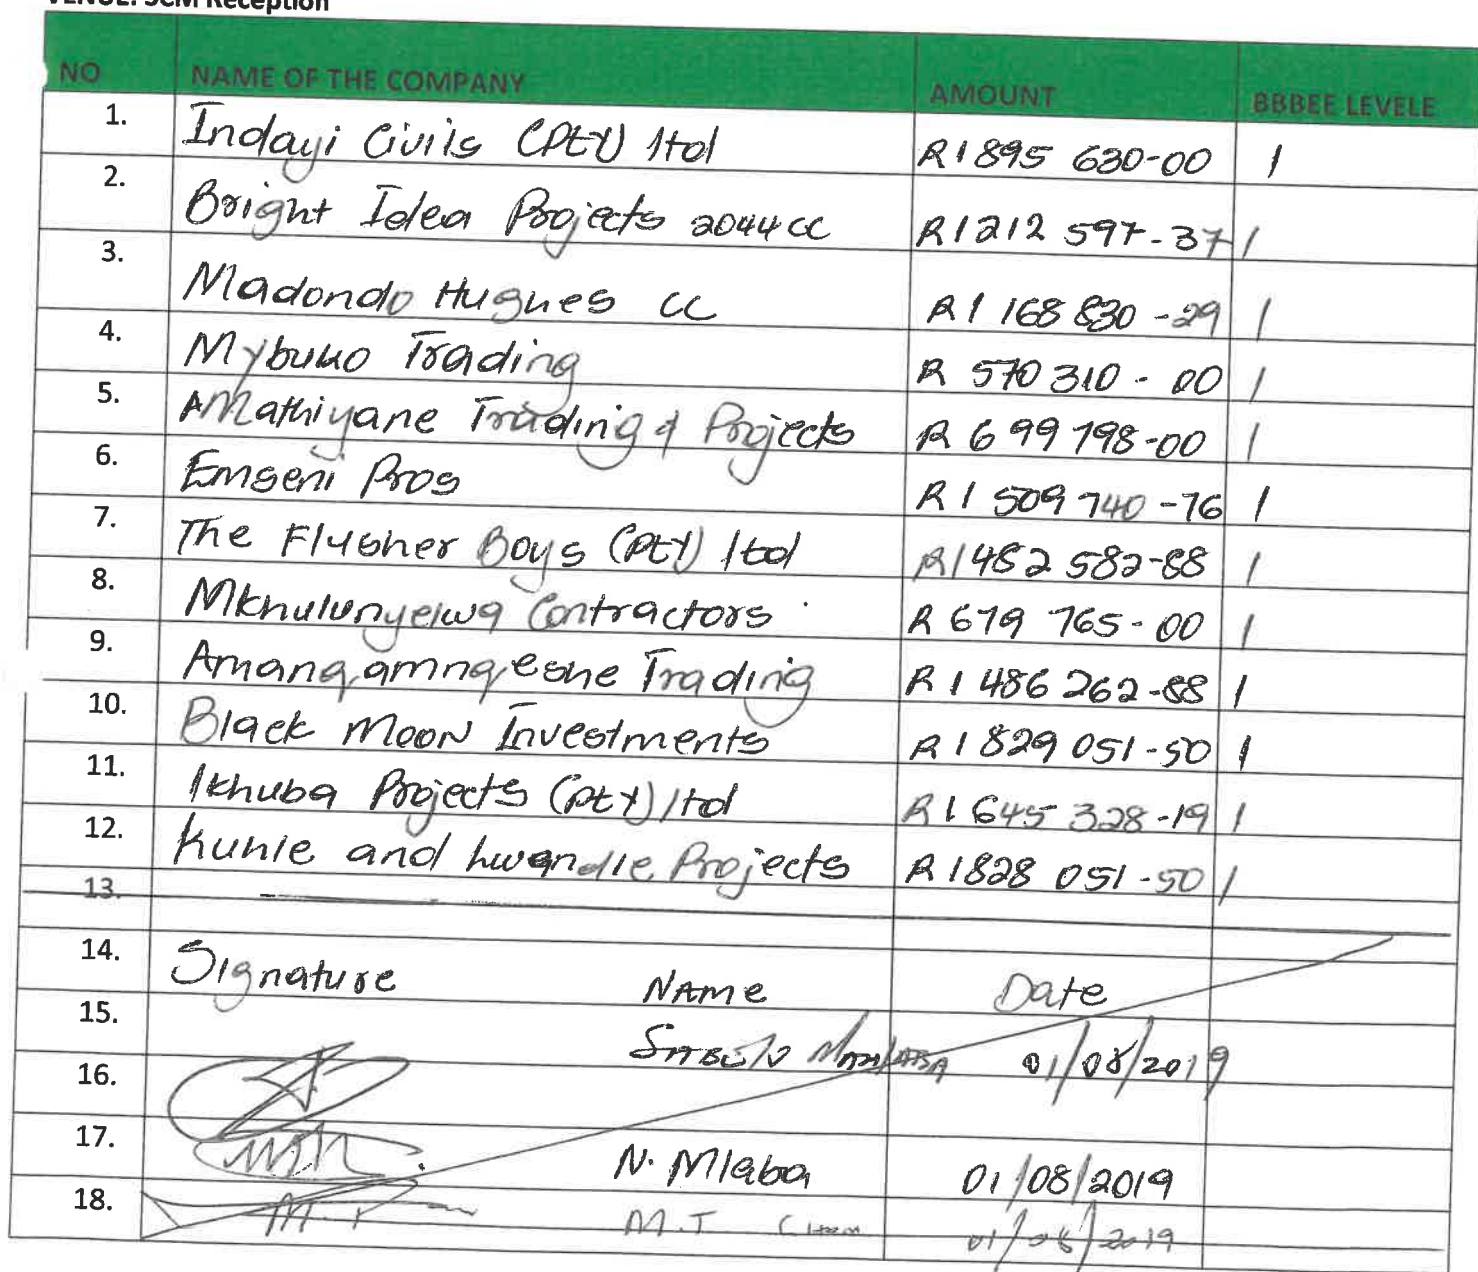 VENUE: SCM Reception
NO NAME OF THE COMPANY AMOUNT BBBEE LEVELE
1. Indayi Civils (PtY) ltd R1 895 630-00 1
2. Bright Idea Projects 2044 CC R1 212 597-37 1
3. Madondo Hughes CC R1 168 830-29 1
4. Mybuko Trading R 570 310-00 1
5. AMathiyane Trading & Projects R 699 798-00 1
6. Emseni Pros R1 509 740-76 1
7. The Flusher Boys (PtY) ltd R1 482 582-88 1
8. Mkhulunyelwa Contractors R 679 765-00 1
9. Amanqamnqeshe Trading R1 486 262-88 1
10. Black Moon Investments R1 829 051-50 1
11. Ikhuba Projects (PtY) ltd R1 645 328-19 1
12. Kuhle and Lwandle Projects R1 828 051-50 1
13.
14. Signature NAME Date
15. 01/08/2019
16.
17. N. Mlaba 01/08/2019
18. M.T 01/08/2019